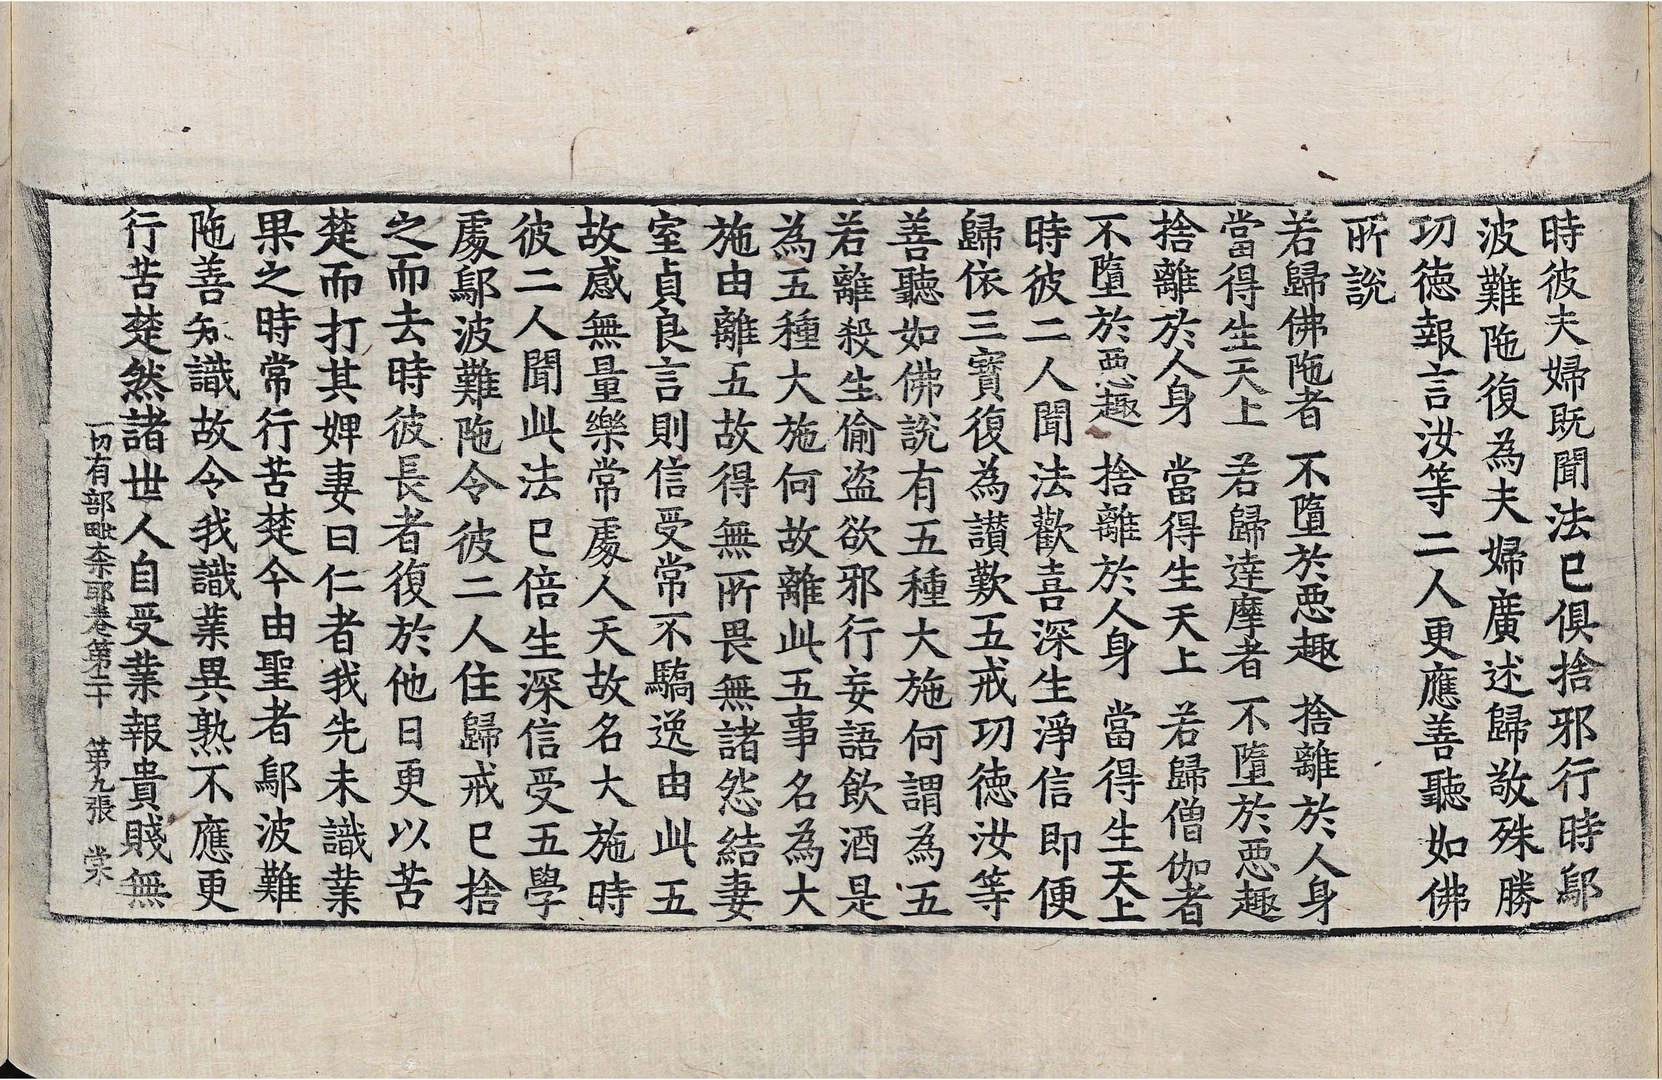 時彼夫婦既聞法已俱捨邪行時鄔
波難陁復為夫婦廣述歸敬殊勝
功德報言汝等二人更應善聽如佛
所說
若歸佛陁者　不墮於惡趣　捨離於人身
當得生天上　若歸達摩者　不墮於惡趣
捨離於人身　當得生天上　若歸僧伽者
不墮於惡趣　捨離於人身　當得生天上
時彼二人聞法歡喜深生淨信即便
歸依三寶復為讃歎五戒功德汝等
善聽如佛說有五種大施何謂為五
若離殺生偷盗欲邪行妄語飲酒是
為五種大施何故離此五事名為大
施由離五故得無所畏無諸怨結妻
室貞良言則信受常不驕逸由此五
故感無量樂常處人天故名大施時
彼二人聞此法已倍生深信受五學
處鄔波難陁令彼二人住歸戒已捨
之而去時彼長者復於他日更以苦
楚而打其婢妻曰仁者我先未識業
果之時常行苦楚今由聖者鄔波難
陁善知識故令我識業異熟不應更
行苦楚然諸世人自受業報貴賤無
一切有部毗奈耶卷第二十　第九張　棠